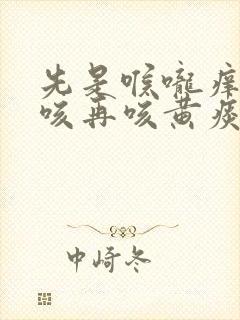 先是喉咙痒
咳再咳黄痰
中崎冬